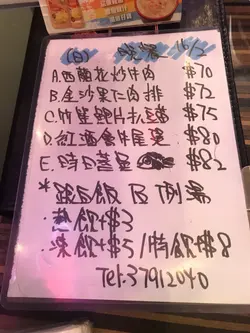 (日) 晚餐
A.西蘭花炒牛肉 $70
B.金沙果仁肉排 $72
C.竹笙鮮片扒豆苗 $75
D.紅酒會牛尾煲 $80
E.時日蒸 $82
*跟白飯及例湯
熱飲+$3
凍飲+$5/特飲+$8
Tel:37912040